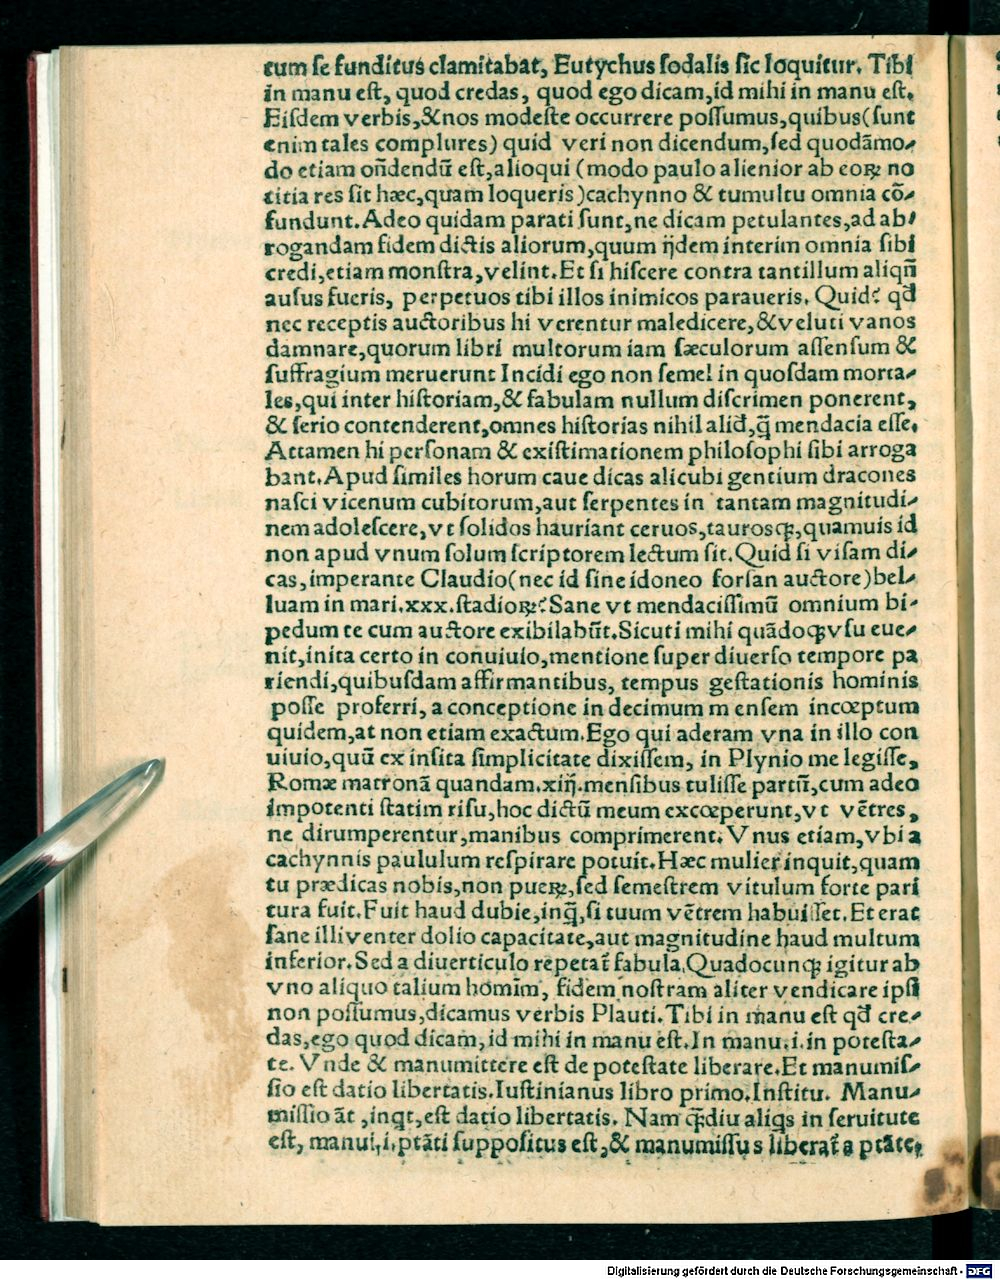 tum se funditus clamitabat, Eutychus sodalis sic loquitur. Tibi
in manu est, quod credas, quod ego dicam, id mihi in manu est.
Eisdem verbis,&nos modeste occurrere possumus,quibus(sunt
enim tales complures) quid veri non dicendum,sed quodāmo⸗
do etiam oñdendū est,alioqui (modo paulo alienior ab eoꝝ no
titia res sit hæc,quam loqueris)cachynno & tumultu omnia cō⸗
fundunt.Adeo quidam parati sunt,ne dicam petulantes,ad ab⸗
rogandam fidem dictis aliorum,quum ijdem interim omnia sibi
credi,etiam monstra,velint.Et si hiscere contra tantillum aliqñ
ausus fueris, perpetuos tibi illos inimicos paraueris. Quid? qđ
nec receptis auctoribus hi verentur maledicere,&veluti vanos
damnare,quorum libri multorum iam sæculorum assensum &
suffragium meruerunt Incidi ego non semel in quosdam morta⸗
les,qui inter historiam,& fabulam nullum discrimen ponerent,
& serio contenderent,omnes historias nihil aliđ,ꝗ̄ mendacia esse.
Attamen hi personam & existimationem philosophi sibi arroga
bant.Apud similes horum caue dicas alicubi gentium dracones
nasci vicenum cubitorum,aut serpentes in tantam magnitudi⸗
nem adolescere,vt solidos hauriant ceruos,taurosqꝫ,quamuis id
non apud vnum solum scriptorem lectum sit.Quid si visam di⸗
cas,imperante Claudio(nec id sine idoneo forsan auctore)bel⸗
luam in mari.xxx.stadioꝝ?Sane vt mendacissimū omnium bi⸗
pedum te cum auctore exibilabūt.Sicuti mihi quādoqꝫ vsu eue⸗
nit,inita certo in conuiuio,mentione super diuerso tempore pa
riendi,quibusdam affirmantibus, tempus gestationis hominis
posse proferri, a conceptione in decimum mensem incœptum
quidem,at non etiam exactum.Ego qui aderam vna in illo con
uiuio,quū ex insita simplicitate dixissem, in Plynio me legisse,
Romæ matronā quandam.xiij.mensibus tulisse partū,cum adeo
impotenti statim risu,hoc dictū meum excœperunt,vt vētres,
ne dirumperentur,manibus comprimerent. Vnus etiam,vbi a
cachynnis paululum respirare potuit.Hæc mulier inquit,quam
tu prædicas nobis,non pueꝝ,sed semestrem vitulum forte pari
tura fuit.Fuit haud dubie,inꝗ̄,si tuum vētrem habuisset.Et erat
sane illi venter dolio capacitate,aut magnitudine haud multum
inferior.Sed a diuerticulo repetat̄ fabula.Quadocunqꝫ igitur ab
vno aliquo talium homīm, fidem nostram aliter vendicare ipsi
non possumus,dicamus verbis Plauti.Tibi in manu est qđ cre⸗
das,ego quod dicam,id mihi in manu est.In manu.i.in potesta⸗
te. Vnde & manumittere est de potestate liberare.Et manumis⸗
sio est datio libertatis.Iustinianus libro primo.Institu. Manu⸗
missio āt ,inqt,est datio libertatis. Nam ꝗ̄diu aliqs in seruitute
est, manui,i.ptāti suppositus est,& manumissus liberat̄ a ptāte.
Digitalisierung gefördert durch die Deutsche Forschungsgemeinschaft - DFG